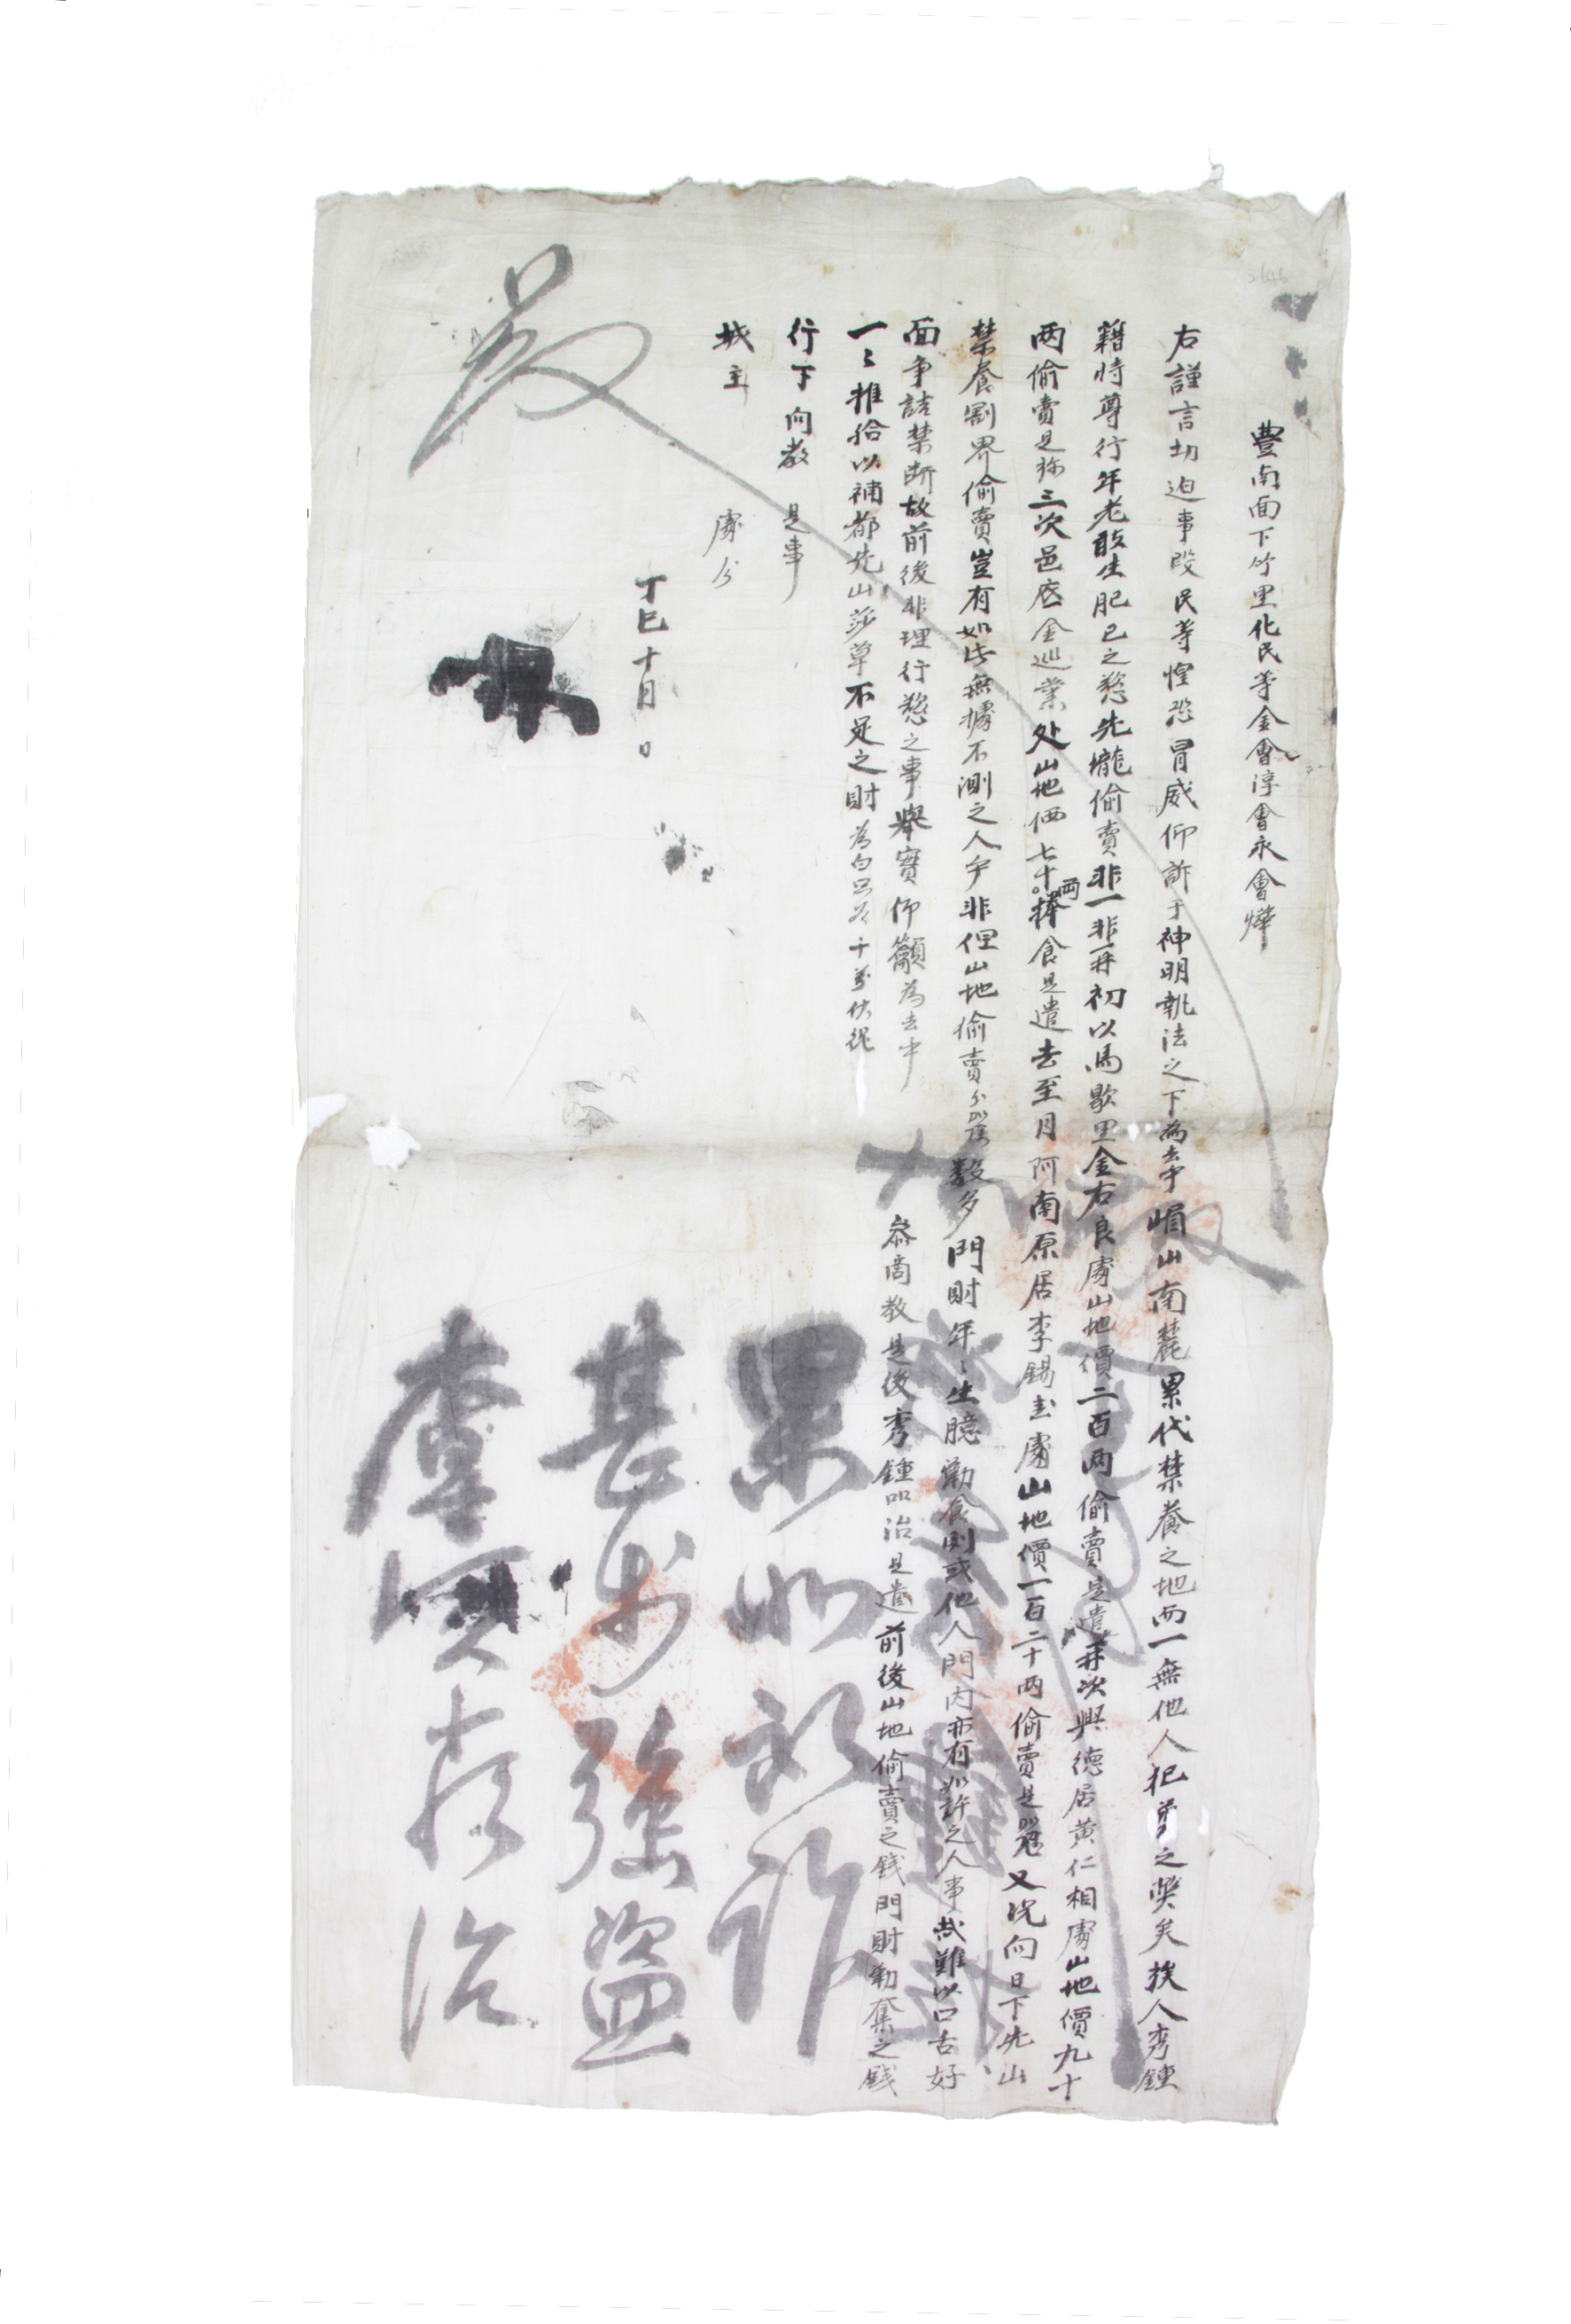 豊南面下竹里化民等金會淳會永會燁
右謹言切迫事段民等惶恐冒威仰訴于神明執法之下爲去乎嵋山南麓累代禁養之地而一無他人犯之弊矣挨人秀鍾
籍恃尊行年老敢生肥己之慾先壠偷賣非一非再初以馬歇里金右良處山地價二百兩偷賣是遣再次興德居黃仁相處山地價九十
兩偷賣是弥三次邑底金巡業処山地価七十兩捧食是遣去至月阿南原居李錫圭處山地價一百二十兩偷賣是又況向日下先山
禁養割界偷賣豈有如此無據不測之人乎非但山地偷賣數多門財年〻生臆勒食則或他人門內亦有如許之人事哉難以口舌好
面爭詰禁斷故前後非理行慾之事擧實仰籲爲去乎 叅商敎是後秀鍾叩治是遣前後山地偷賣之錢門財勒奪之錢
一〻推給以補都先山莎草不足之財爲白只爲千萬伏祝
行下向敎是事
城主 處分
丁巳十月 日
累如所訴
甚於強盜
查實嚴治